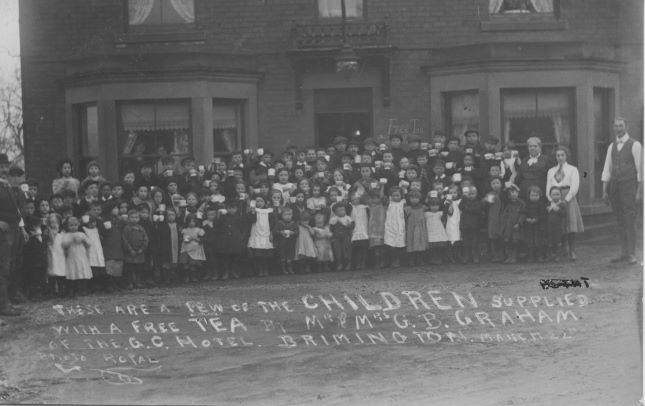 Free Tea
THESE ARE A FEW OF THE CHILDREN SUPPLIED
WITH A FREE TEA BY MR & MRS G. B. GRAHAM.
OF THE G.C. HOTEL. BRIMINGTON.
PHOTO ROYAL